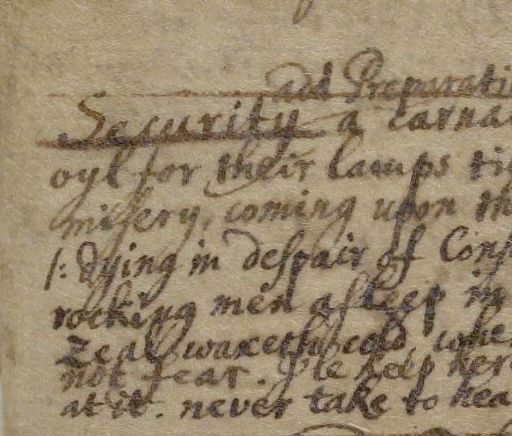 add Preparati
Security a carna
oyl for their lamps ti
misery, coming upon th
1: dying in despair of Cons
rocking men asleep in
zeal waxeth cold, whe
not fear. I'le keep her
at it. never take to hea